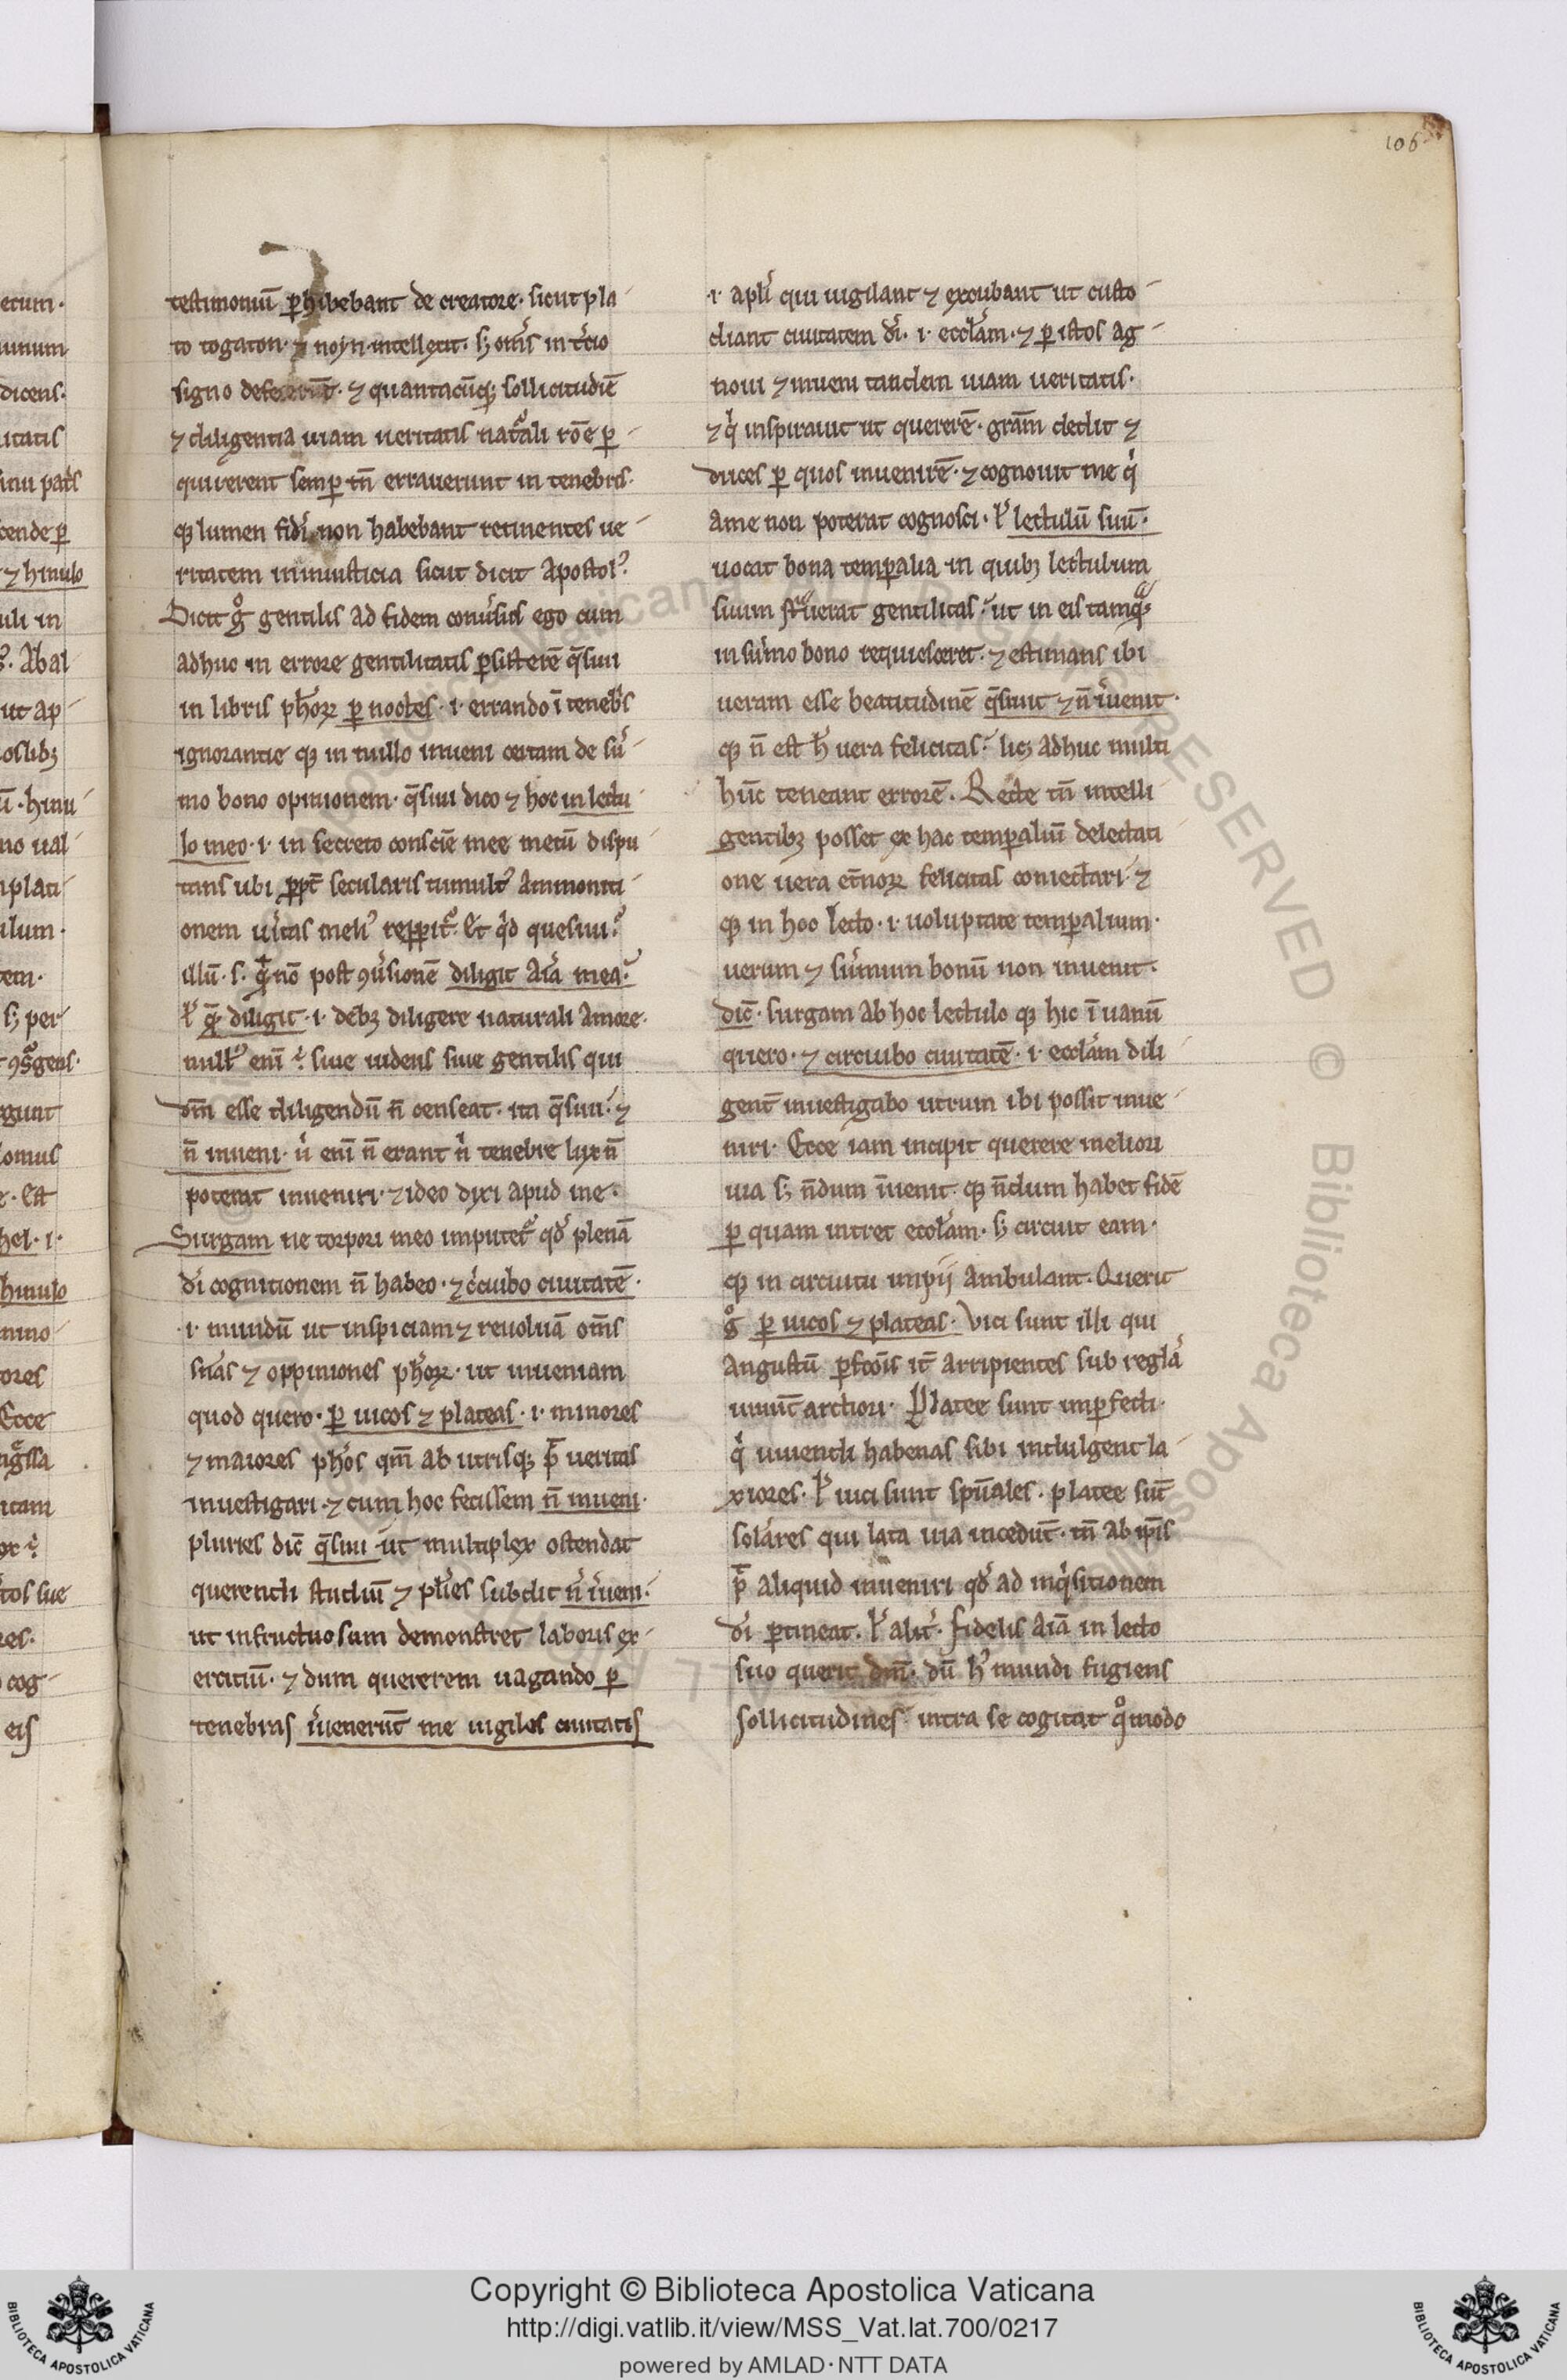 106
testimoniū ꝑhibebant de creatore· sicut pla
to togaton· ⁊ noyn intellexit· sꝫ om̅s in t̾cio
signo defecerūt· ⁊ quantacūqꝫ sollicitudīe
⁊ diligentia uiam ueritatis natᷓali rōe ꝑ
quirerent semꝑ tn̄ errauerunt in tenebris·
qꝫ lumen fidei non habebant retinentes ue
ritatem in iniusticia sicut dicit apostolꝰ·
Dicit gͦ gentilis ad fidem conu̾sus ego cum
adhuc in errore gentilitatis ꝑsisterē q̄siui
in libris ph̾oꝝ ꝑ noctes· i· errando ī tenebⁱs
ignorantie qꝫ in nullo inueni certam de sū
mo bono opinionem· q̄siui dico ⁊ hoc in lectu
lo meo· i· in secreto consciē mee mecū dispu
tans ubi ꝓpt̄ secularis tumultꝰ ammoniti
onem u̾itas meliꝰ repꝑit᷑· Et qⁱd quesiui?
illū· s· quē nō post ꝯu̾sionē diligit aīa mea·
ul̾ quē diligit· i· debꝫ diligere naturali amore·
nullꝰ enī ē siue iudeus siue gentilis qui
dm̄ esse diligendū n̄ censeat· ita q̄siui· ⁊
n̄ inueni· uⁱ enī n̄ erant nⁱ tenebre lux n̄
poterat inueniri· ⁊ ideo dixi apud me·
Surgam ne torpori meo imputet᷑ qd̾ plenā
di̾ cognitionem n̄ habeo· ⁊ cⁱcuibo ciuitatē·
i· mundū ut inspiciam ⁊ reuoluā om̄s
sn̄ias ⁊ oppiniones ph̾oꝝ· ut inueniam
quod quero· ꝑ uicos ⁊ plateas· i· minores
⁊ maiores ph̾os qm̄ ab utrisqꝫ p̄t ueritas
inuestigari· ⁊ cum hoc fecissem n̄ inueni·
pluries dic̄ q̄siui ut multiplex ostendat
querendi studiū ⁊ plu̾es subdit n̄ īueni·
ut infructuosum demonstret laboris ex
ercitiū· ⁊ dum quererem uagando ꝑ
tenebras īuenerūt me uigiles ciuitatis
·i· apl̾i qui uigilant ⁊ excubant ut custo
diant ciuitatem di̾· i· eccl̾am· ⁊ ꝑ istos ag
noui ⁊ inueni tandem uiam ueritatis·
⁊ qⁱ inspirauit ut quererē· gr̄am dedit ⁊
duces ꝑ quos inuenirē· ⁊ cognouit me qⁱ
a me non poterat cognosci· ul̾ lectulū suū·
uocat bona temꝑalia in quibꝫ lectulum
suum strauerat gentilitas· ut in eis tamqᷓ
in sūmo bono requiesceret· ⁊ estimans ibi
ueram esse beatitudinē q̄siuit ⁊ n̄ īuenit·
qꝫ n̄ est h̾ uera felicitas· licꝫ adhuc multi
hūc teneant errorē. Recte tn̄ intelli
gentibꝫ posset ex hac temꝑaliū delectati
one uera et̄noꝝ felicitas coniectari· ⁊
qꝫ in hoc lecto· i· uoluptate temꝑalium·
uerum ⁊ sūmum bonū non inuenit·
dic̄· surgam ab hoc lectulo qꝫ hic ī uanū
quero· ⁊ circuibo ciuitatē· i· eccl̾am dili
gent̄ inuestigabo utrum ibi possit inue
niri· Ecce iam incipit querere meliori
uia sꝫ n̄dum īuenit qꝫ n̄dum habet fidē
ꝑ quam intret eccl̾am· sꝫ circuit eam·
qꝫ in circuitu impij ambulant· Querit
gͦ ꝑ uicos ⁊ plateas· Vici sunt illi qui
angustū ꝑfc̄ōis it̄ arripientes sub regl̾a
uiuūt arctiori· Platee sunt imꝑfecti·
qⁱ uiuendi habenas sibi indulgent la
xiores· ul̾ uici sunt spūales· platee sūt
sol̾ares qui lata uia incedūt· tn̄ ab ip̄is
p̄t aliquid inueniri qd̾ ad inqⁱsitionem
di̾ ꝑtineat. ul̾ alit̾· fidelis aīa in lecto
suo querit dm̄· dū h̾ mundi fugiens
sollicitudines intra se cogitat qͦmodo
Copyright © Biblioteca Apostolica Vaticana
http://digi.vatlib.it/view/MSS_Vat.lat.700/0217
powered by AMLAD·NTT DATA
BIBLIOTECA APOSTOLICA VATICANA
BIBLIOTECA APOSTOLICA VATICANA